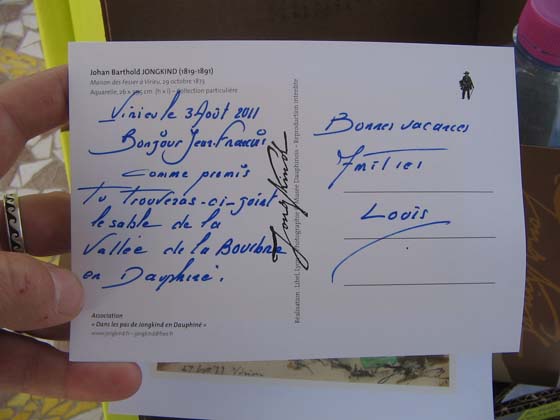 Johan Barthold JONGKIND (1819-1891)
Maison des Fesser à Virieu, 29 octobre 1873
Aquarelle, 26 x cm (h x l) – Collection particulière
Virieu le 3 Août 2011
Bonjour Jean-Francois
Comme promis
Tu trouveras-ci-joint
le sable de la
Vallée de la Bourbre
en Dauphiné.
Association
« Dans les pas de Jongkind en Dauphiné »
www.jongkind.fr - jongkind@free.fr
Jongkind
Réalisation Photographie Musée Dauphinois – Reproduction interdite
Bonnes vacances
Amitiés
Louis